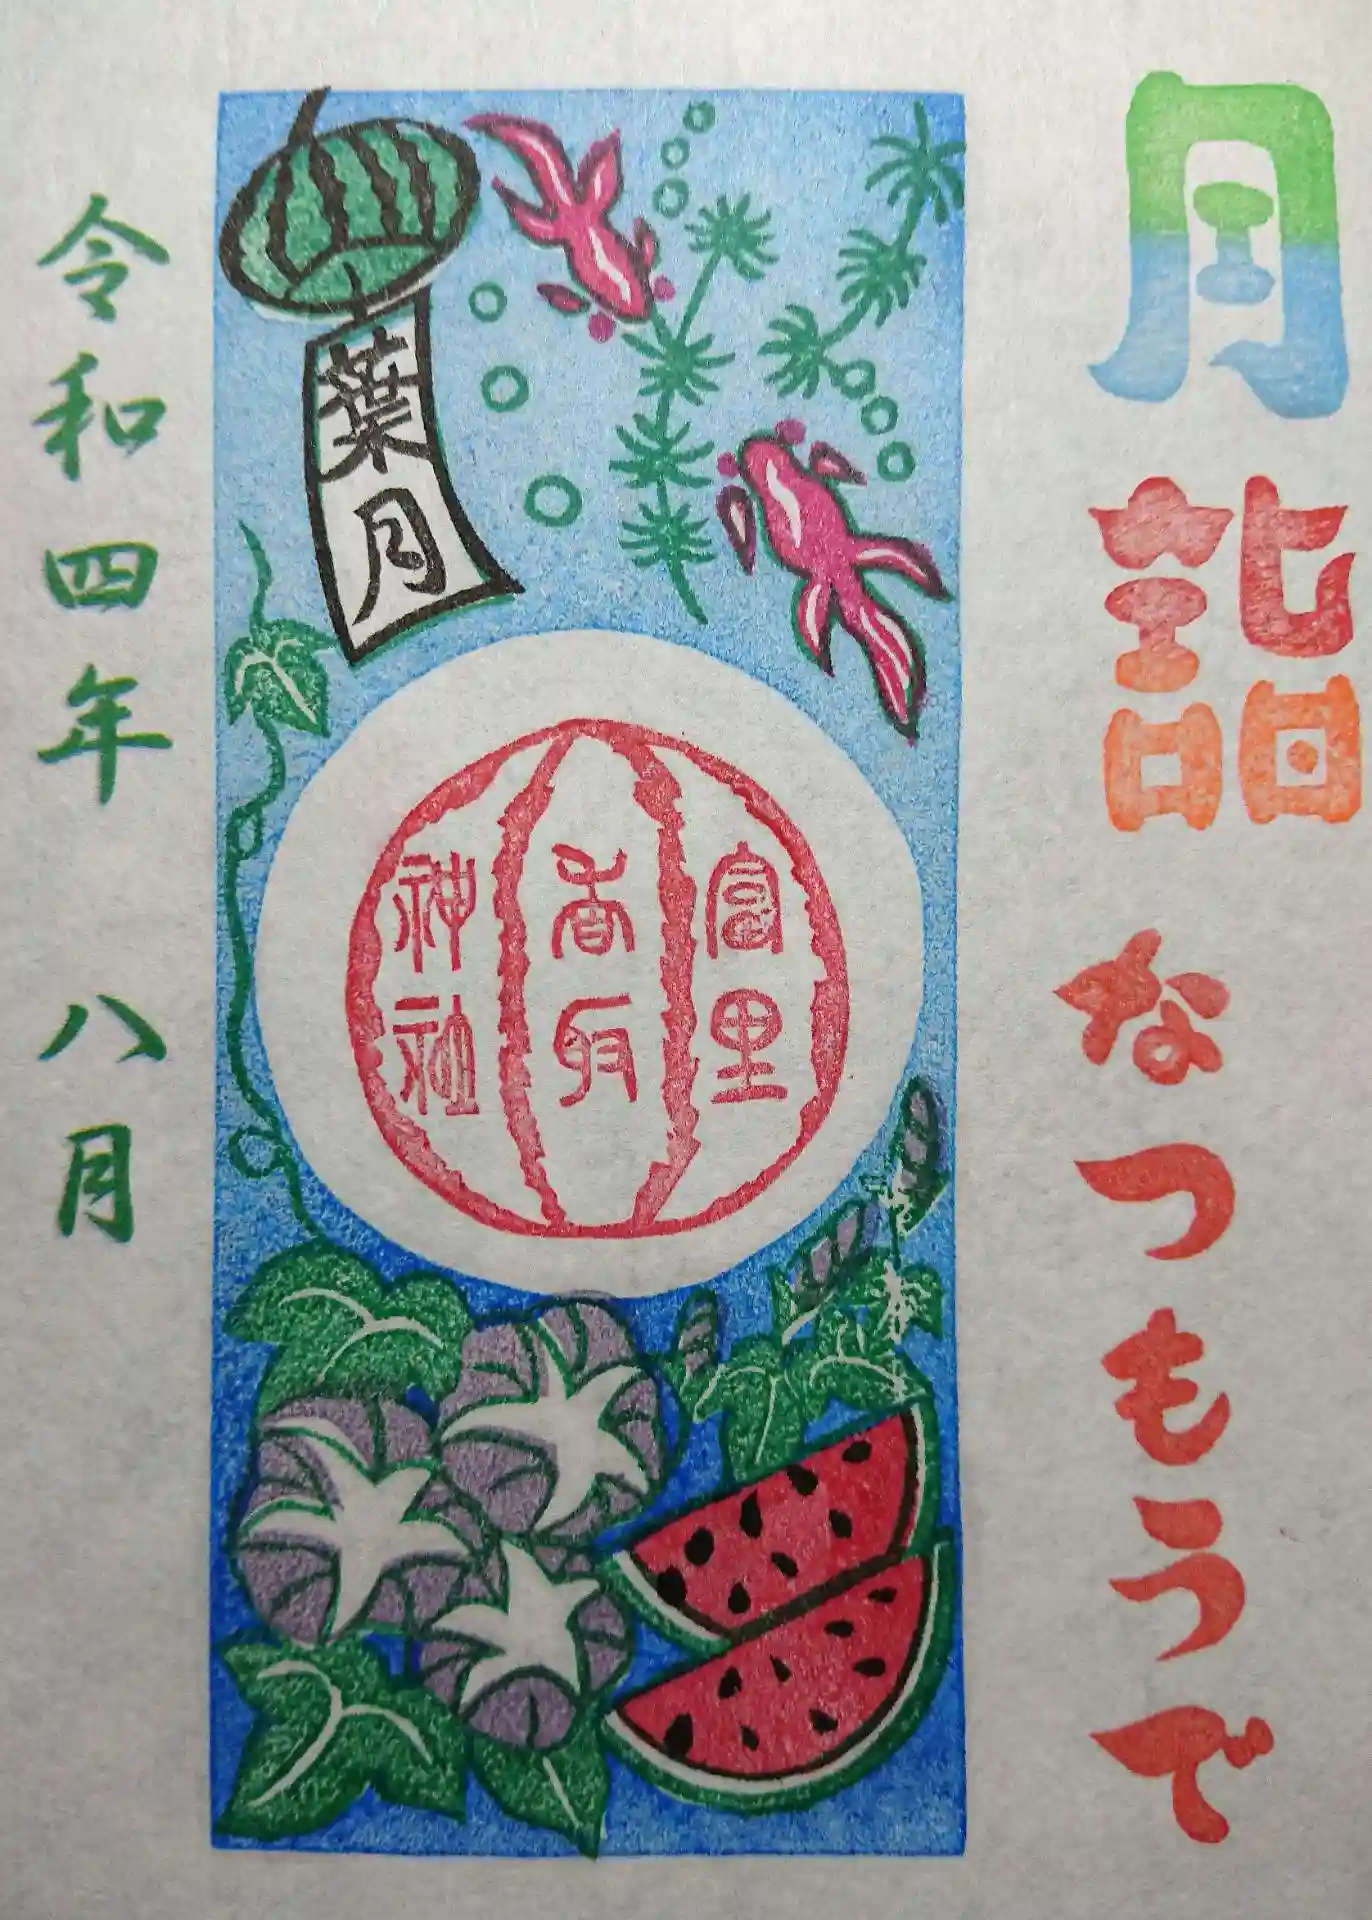 月詣 なつもうで
葉月
富里
香取
神社
令和四年 八月